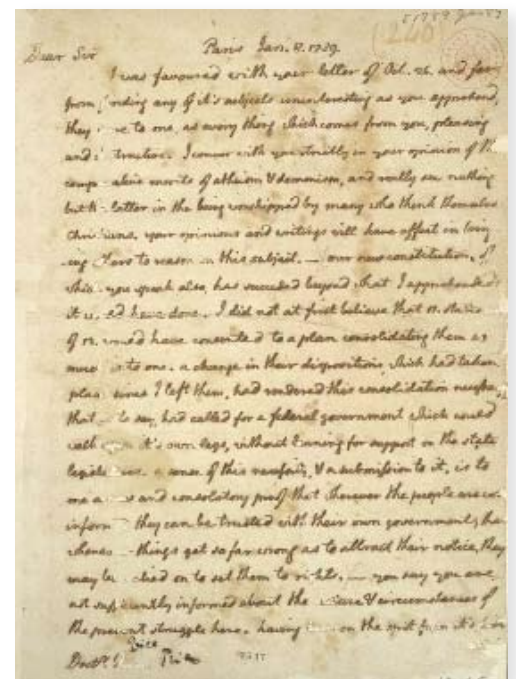 Paris Jan. 8. 1789.
Dear Sir
I was favoured with your letter of Oct. 26. and far
from finding any of it's subjects uninteresting as you apprehend,
they to me, as every thing which comes from you, pleasing
and I concur with you strictly in your opinion of the
merits of atheism & demonism, and really see nothing
but the latter in the being worshipped by many who think themselves
Christians. your opinions and writings will have effect in bring-
ing others to reason on this subject. — our new constitution, of
which you speak also, has succeeded beyond what I apprehended
it would have done. I did not at first believe that 11. states
of 13. would have consented to a plan consolidating them as
much into one. a change in their dispositions, which had taken
place since I left them, had rendered this consolidation necessary,
that is to say, had called for a federal government which could
walk upon it's own legs, without leaning for support on the state
legislatures. a sense of this necessity, & a submission to it, is to
me a new and consolatory proof that wherever the people are well
informed they can be trusted with their own government; that
whenever things get so far wrong as to attract their notice, they
may be relied on to set them to rights. — you say you are
not sufficiently informed about the nature & circumstances of
the present struggle here. having been on the spot from it's first
Doctr. Price